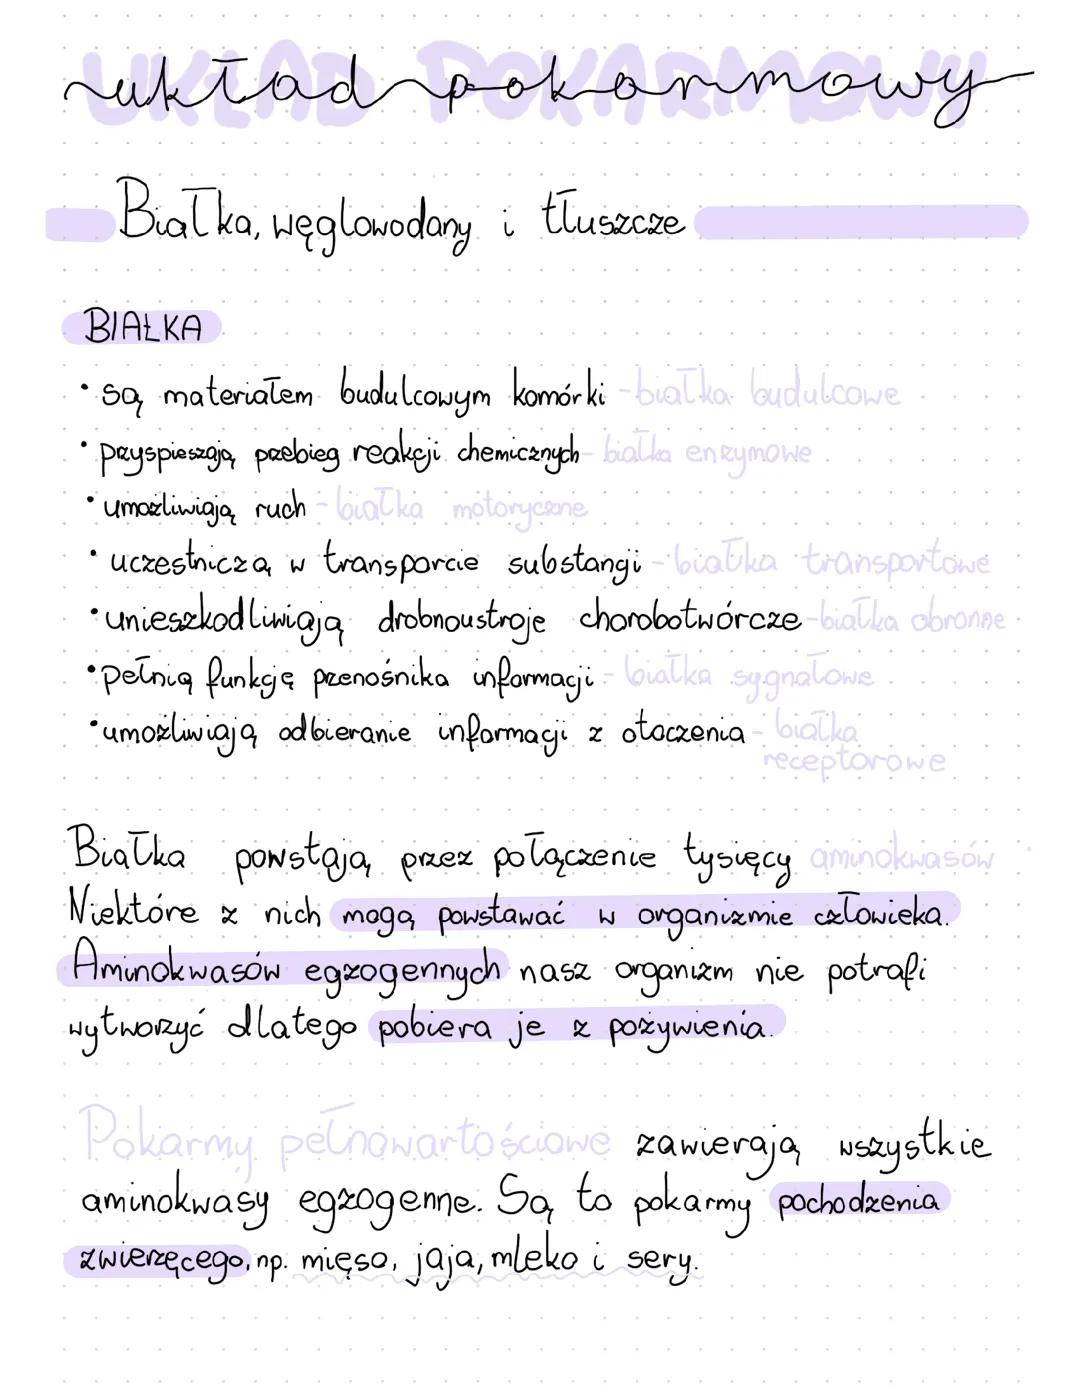 UKŁAD POKARMOWY
układ pokarmowy
Białka, węglowodany i tłuszcze
BIAŁKA
• są materiałem budulcowym komórki - białka budulcowe
• przyspieszają przebieg reakcji chemicznych - białka enzymowe
• umożliwiają ruch - białka motoryczne
• uczestniczą w transporcie substancji - białka transportowe
• unieszkodliwiają drobnoustroje chorobotwórcze - białka obronne
• pełnią funkcję przenośnika informacji - białka sygnałowe
• umożliwiają odbieranie informacji z otoczenia - białka
receptorowe
Białka powstają przez połączenie tysięcy aminokwasów
Niektóre z nich mogą powstawać w organizmie człowieka.
Aminokwasów egzogennych nasz organizm nie potrafi
wytworzyć dlatego pobiera je z pożywienia.
Pokarmy pełnowartościowe zawierają wszystkie
aminokwasy egzogenne. Są to pokarmy pochodzenia
zwierzęcego, np. mięso, jaja, mleko i sery.